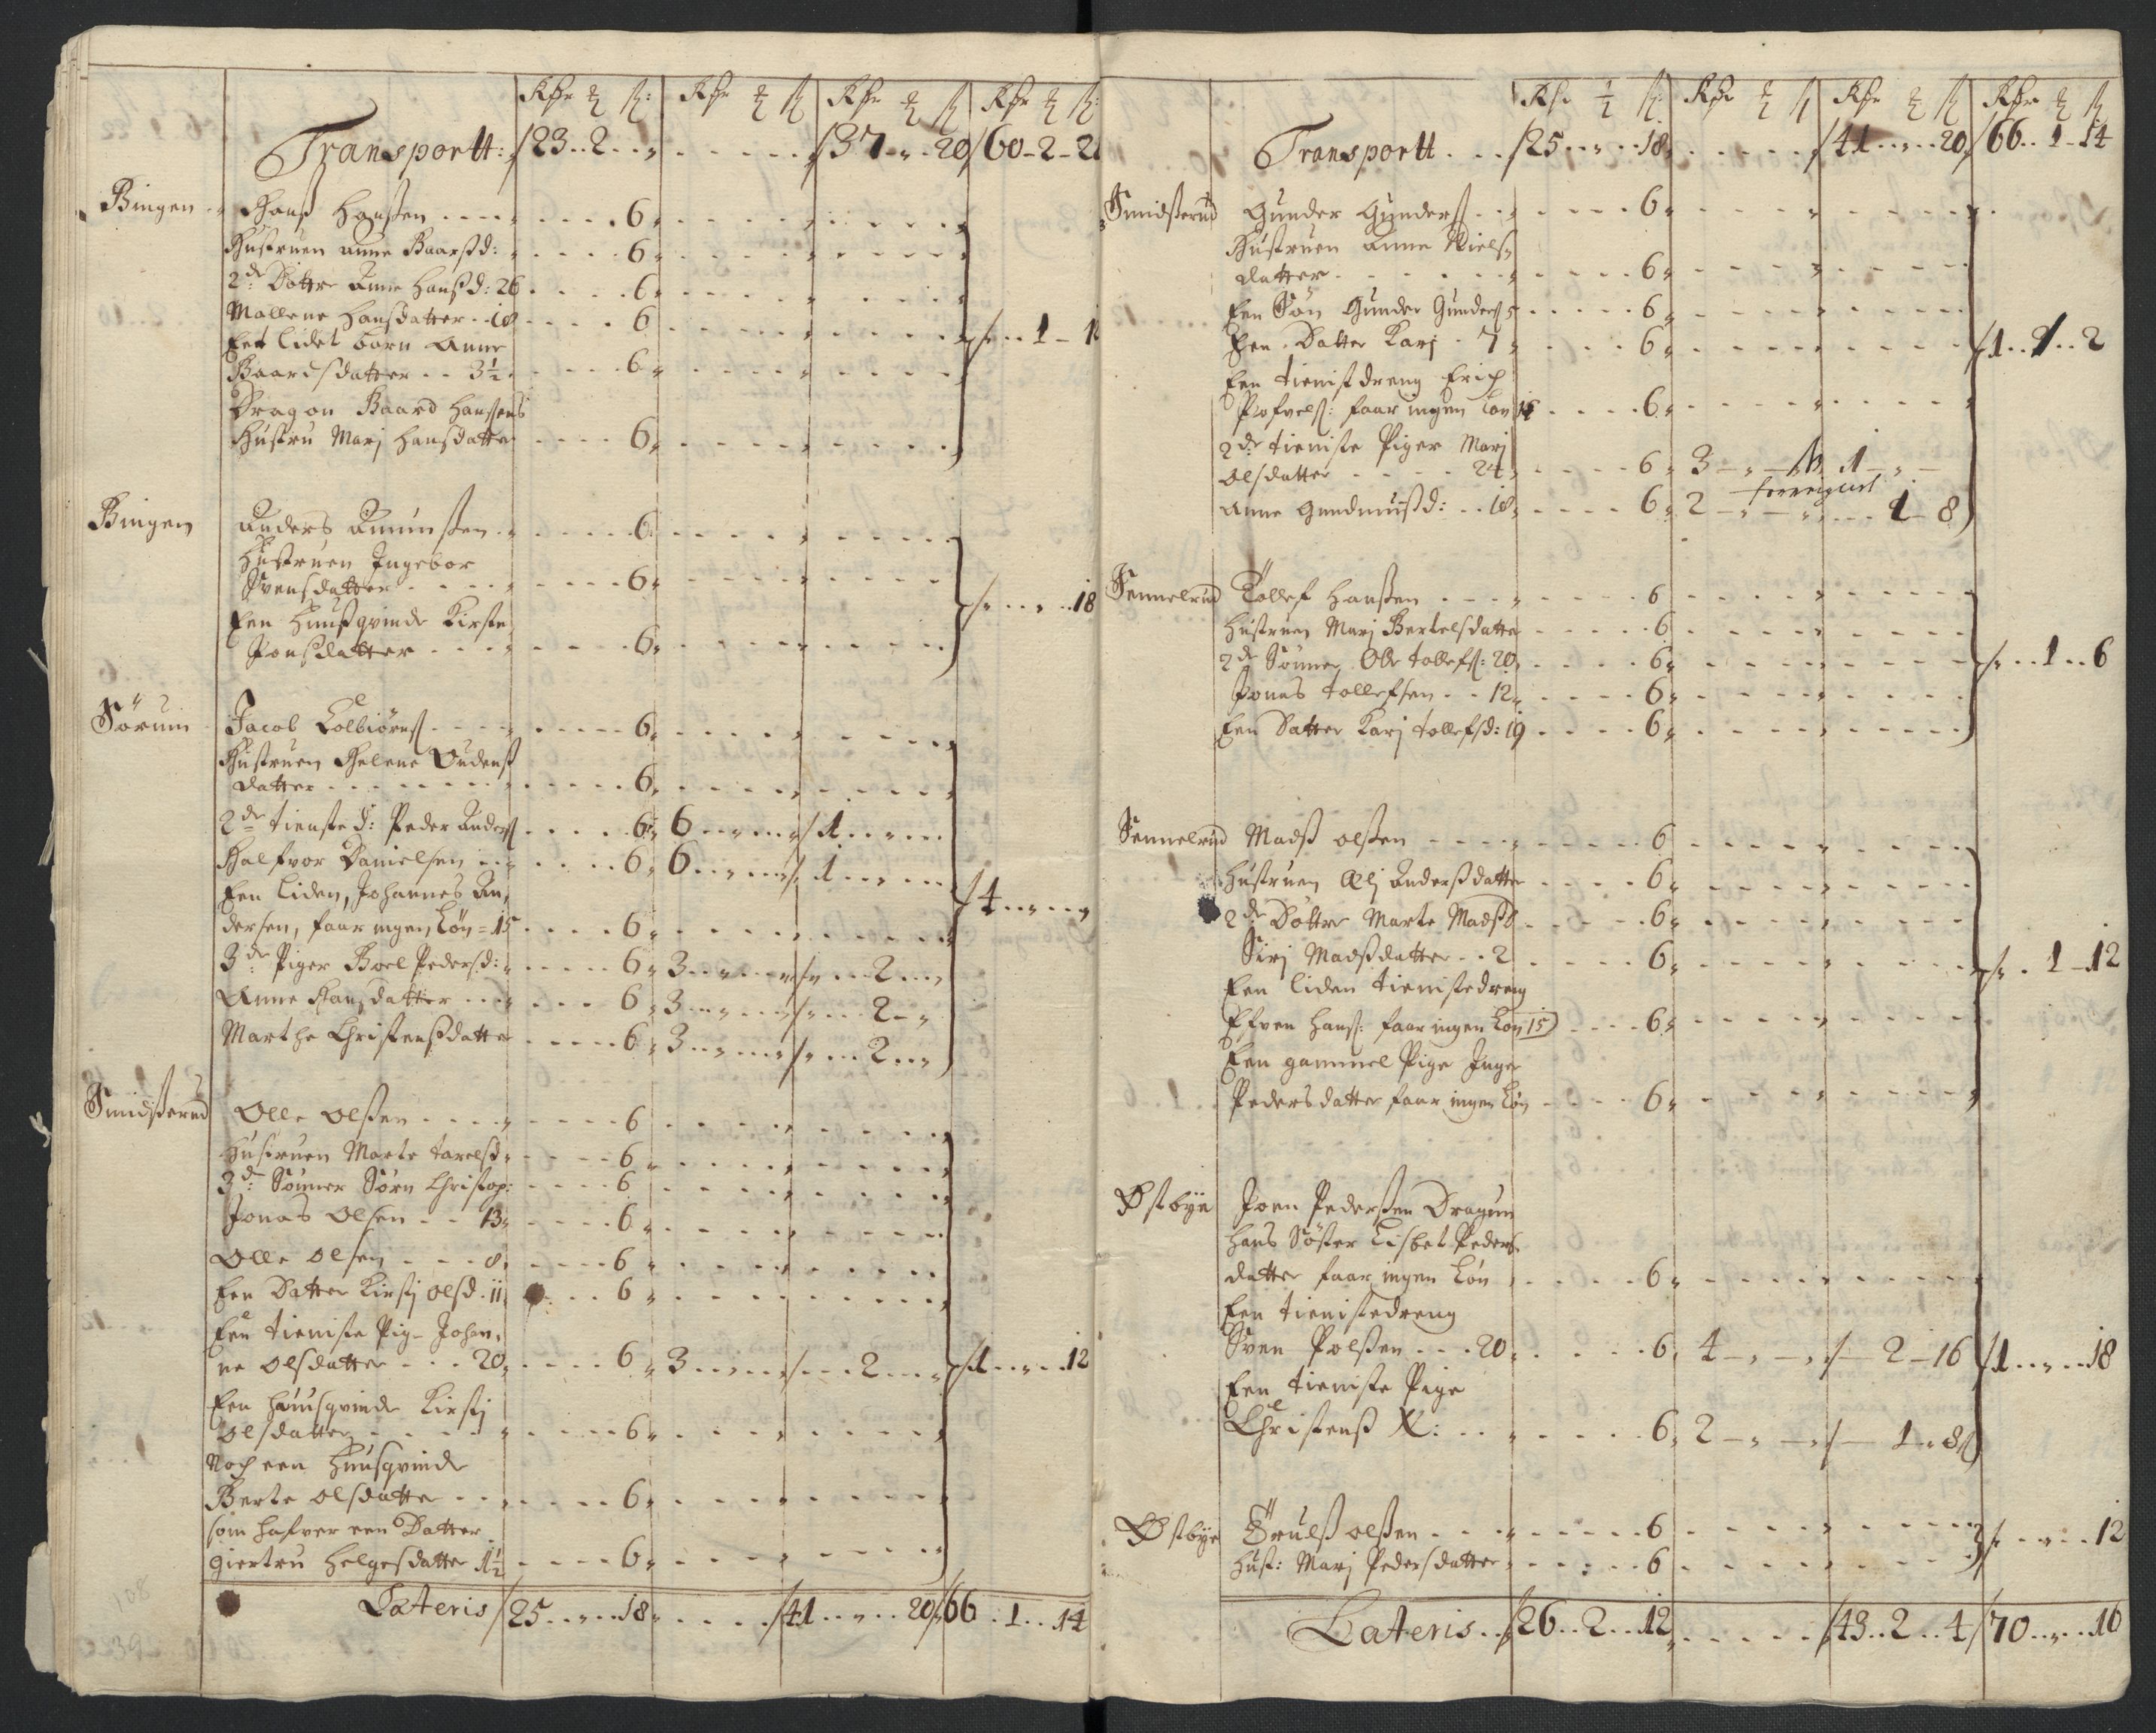 Transportt: 23..2.. 37.. 20 60-2-2
Bingen Hanß Hanßen 6
Hustruen Anne Baarsd: 6
2de Døttre Anne Hansd: 26 6
Mallene Hansdatter 18 6
Eet lidet barn Anne 1
Baardsdatter 3½ 6
Dragon Baard Hansens
Hustru Marj Hansdatter 6
Bingen Anders Amunßen 6
Hustruen Ingebor
Svensdatter 6 18
Een Huusqvinde Kirste
Jonsdatter 6
Sørum Jacob Colbiørnß 6
Hustruen Helene Oudenß
datter 6
2de tienste d: Peder Anderß 6 6 1
Halfvor Danielsen 6 6 1
Een liden, Johannes An, 4
dersen, faar ingen Løn = 15 6
3de Piger Boel Pedersd: 6 3 2
Anne Hansdatter 6 3 2
Marthe Christensdatter 6 3 2
Smidßerud Olle olßen 6
Hustruen Marte tarelsd 6
3de Sønner Sørn Christop: 6
Jonas Olsen 13 6
Olle olsen 8 6
Een Datter Kirstj olsd. 11 6
Een tieniste Pig- Johan,
ne olsdatter 20 6 3 2 1 12
Een huusqvinde Kirstj
olsdatter 6
Noch een Huusqvinde
Berte olsdatter 6
som hafver een Datter
giertru Helgesdatter 1½ 6
Lateris 25 18 41 20 66 1 14
Transportt 25 18 41 20 66 1 14
Smidßerud Gunder Gunderß 6
Hustruen Anne Niels
datter 6
Een Søn Gunder Gunderß 5 6
Een Datter Karj 7 6 1 1 2
Een tienistdreng Erich
faar ingen Løn 6
2de tieniste Piger Marj
olsdatter 24 6 3 1
Anne Gundmuißd: 18 6 2 1 8
Sennelrud Tollef Hanßen 6
Hustruen Marj Bertelsdatter 6
2de Sønner Ole tollefß: 20 6 1 6
Jonas tollefsen 12 6
Een Datter Karj tollefsd: 19 6
Sennelrud Madß olßen 6
Hustruen Anderßdatter 6
2de Døttre Marte Madßd 6
Sirj Madßdatter 2 6 1 12
Een liden tienistedreng
Efven Hanß: faar ingen Løn 15 6
Een gammel Pige Inger
Pedersdatter faar ingen Løn 6
Østbye Joen Pederßen Dragun
Hans Søster Lisbet Peders
datter faar ingen Løn 6
Een tienistedreng
Sven Polßen 20 6 4 2 16 1 18
Een tieniste Pige
Christenß 6 2 1 8
Østbye Trulß olßen 6 12
Hust: Marj Pedersdatter 6
Lateris 26 2 12 43 2 4 70 16